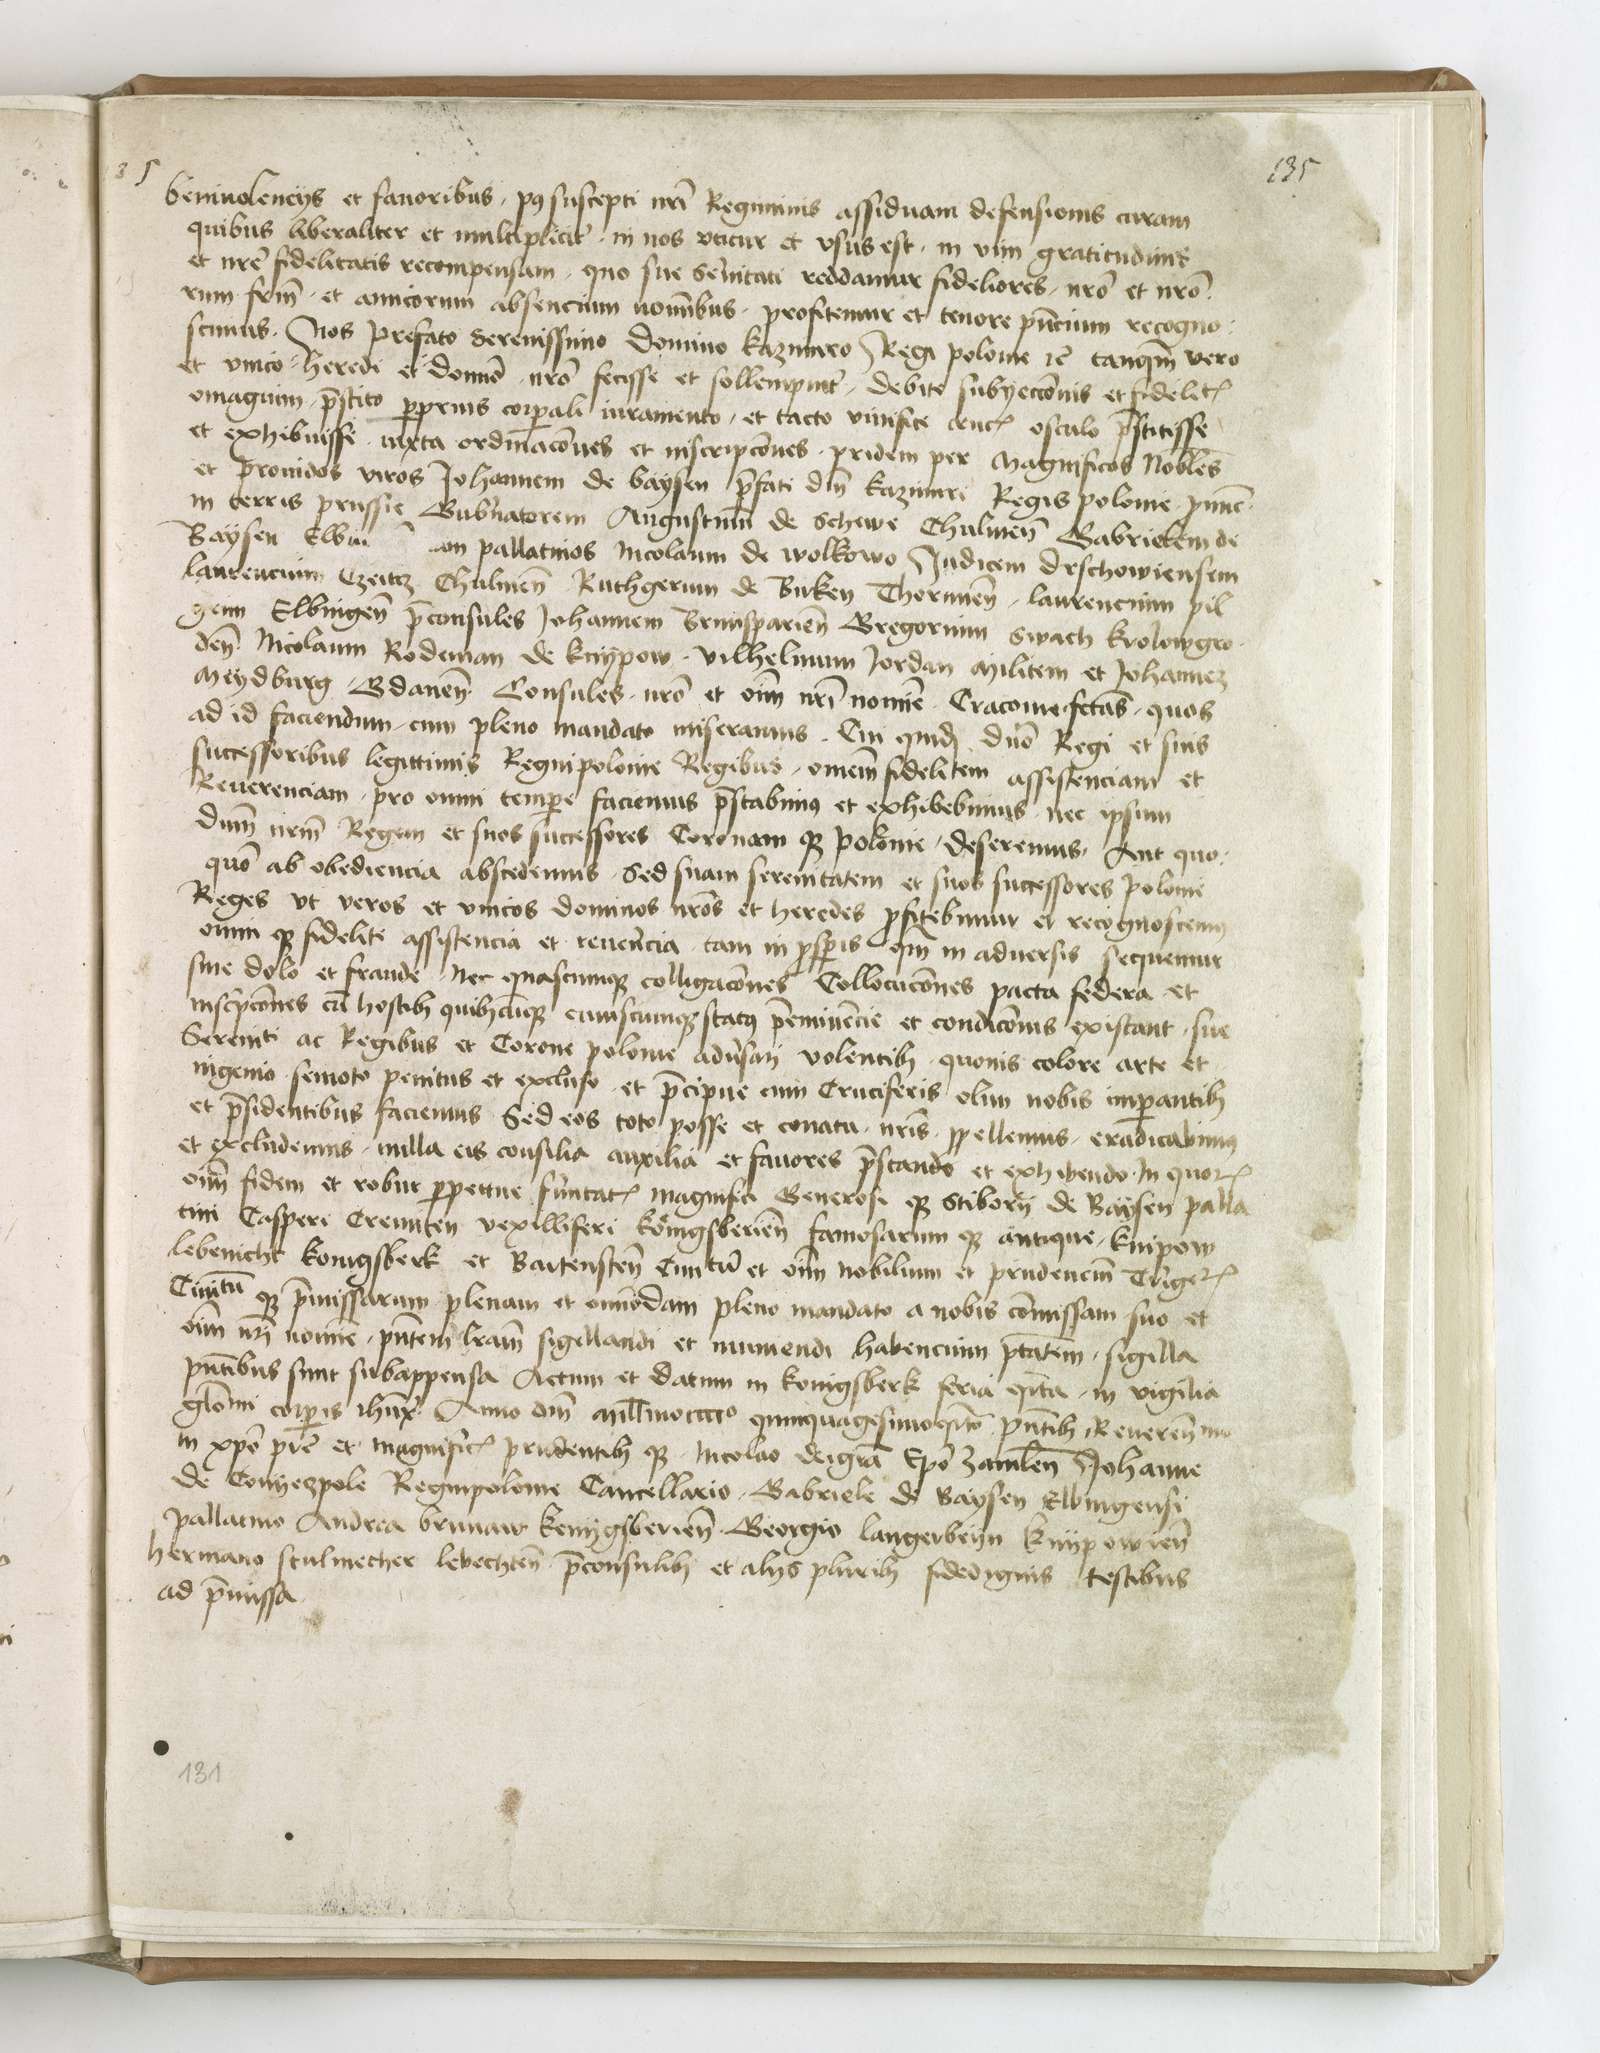 135
benivolencijs et favoribus, p9 suscepti nrī Regiminis assiduam defensionis curam
quibus liberaliter et multiplicit̄ in nos utitur et usus est, in vim gratitudinis
et nrē fidelitatis recompensam, quo sue Sērnitati reddamur fideliores, nrō et nrō
rum frm̄ et amicorum absencium nomībus, profitemur et tenore pn̄cium recogno
scimus. Nos prefato Serenissimo domino Kazimiro Regi polonie ic̄ tanqm̄ vero
et unico heredi et domīo nrō fecisse et sollempnit̄, debite subyecc̄onis et fidelit
omagium, p̄stito p̄prijs corp̄ali iuramento, et tacto vivifice cruc osculo p̄stitisse
et exhibuisse iuxta ordinac̄ones et inscripc̄ones pridem per Magnificos Nobiles
et providos viros Johannem de baysen p̄fati dn̄i Kazimiri Regis polonie, pnnc̄
in terris prussie Gub̄natorem Augustinū de Schewe Chulmen̄ Gabrielem de
Baysen Elbin pallatinos Nicolaum de wolkowo Judicem drschowiensem
laurencium Czeitz Chulmen̄ Ruthgerum de Birken Thorunen̄, laurencium pil
grim Elbingen̄ p̄consules Johannem Brunsparien̄ Gregorium Swach Krolowgro
den̄ Nicolaum Rodeman de knypow, Vilhelmum Jordan Militem et Johannez
Meydburg, Gdanen̄ Consules, nrō et oīm nrī nomīe, Cracovie fctas̄, quos
ad id faciendum, cum pleno mandato miseramus. Cui quid dn̄o Regi et suis
successoribus legittimis Regni polonie Regibus, omem̄ fidelitem assistenciam et
Reverenciam, pro omni temp̄e faciemus p̄stabim9 et exhibebimus, nec ipsum
dnm̄ nrm̄ Regem et suos successores Coronam q; polonie, deseremus, Aut quo
quō ab obediencia abscedemus, Sed suam serenitatem et suos successores polonie
Reges ut veros et unicos dominos nrōs et heredes p̄fitebimur et recognoscem9
omni q; fidelitē assistencia et rev̄encia, tam in p̄sp̄is qm̄ in adversis sequemur
sine dolo et fraude, Nec quascumque colligac̄ones Collocuc̄ones pacta federa et
inscr̄pc̄ones cū hostib quibcūque cuiuscumque stat9 p̄eminēcie et condic̄onis existant, sue
Sereniti ac Regibus et Corone polonie adv̄sari volentib, quovis colore arte et
ingenio, semoto penitus et excluso, et p̄cipue cum Cruciferis olim nobis imp̄antib
et p̄sidentibus faciemus Sed eos toto posse et conatu nrīs p̄pellemus, eradicabim9
et excludemus, nulla eis consilia auxilia et favores p̄stando et exhibendo. In quor
oīm fidem et robur p̄pettue fir̄mtat magnifici Generosi q; Stiborij de Baysen palla
tini Casperi Cremiten vexilliferi Königsberien̄ famosarum q; antique, Knipow
lebenicht Konigsberk et Bartensten̄ Civitū et oīm nobilium et prudencīm
Civitū q; p̄missarum plenam et omīodam pleno mandato a nobis cōmissam suo et
oīm nrī nomīe, pn̄tem lrām sigillandi et muniendi habencium p̄tatem, sigilla
pn̄tibus sunt subappensa Actum et datum in Konigsberk feria qīta, in vigilia
glōsi corp̄is ihūx̄ Anno dm̄ Mill̄imocccco quinquagesimoq̄rto pn̄tib Reveren̄mo
in xpō prē et magnific prudentib q;, Nicolao deigrā Epō Zamlen̄ Johanne
de Conyezpole Regni polonie Cancellario, Gabriele de Baysen Elbingensi
pallatino Andrea brunaw Kenygsberien̄ Georgio langerbeyn Knypowien̄
Hermano stulmecher lebechten̄ p̄consulib et alijs plurib fidedignis testibus
ad p̄missa
131